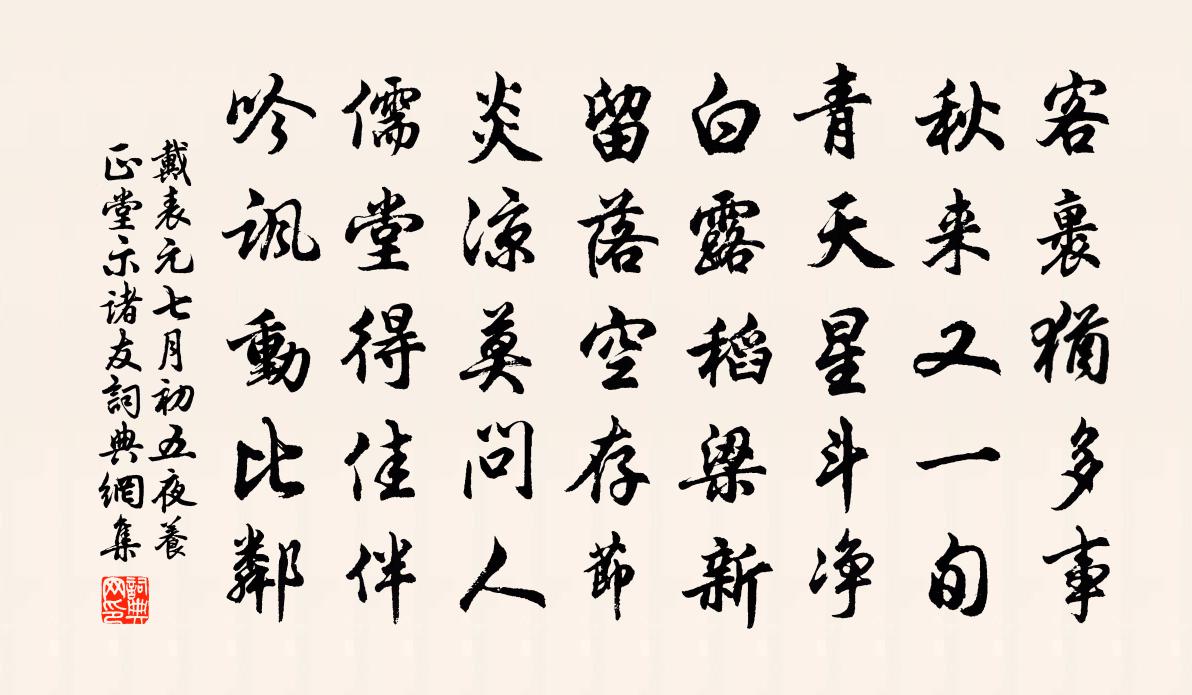 客裏猶多事
秋来又一旬
青天星斗净
白露稻粱新
留落空存節
炎凉莫問人
儒堂得佳伴
吟諷動比鄰
戴表元七月初五夜養
正堂示诸友詞典網集
詞典
网印